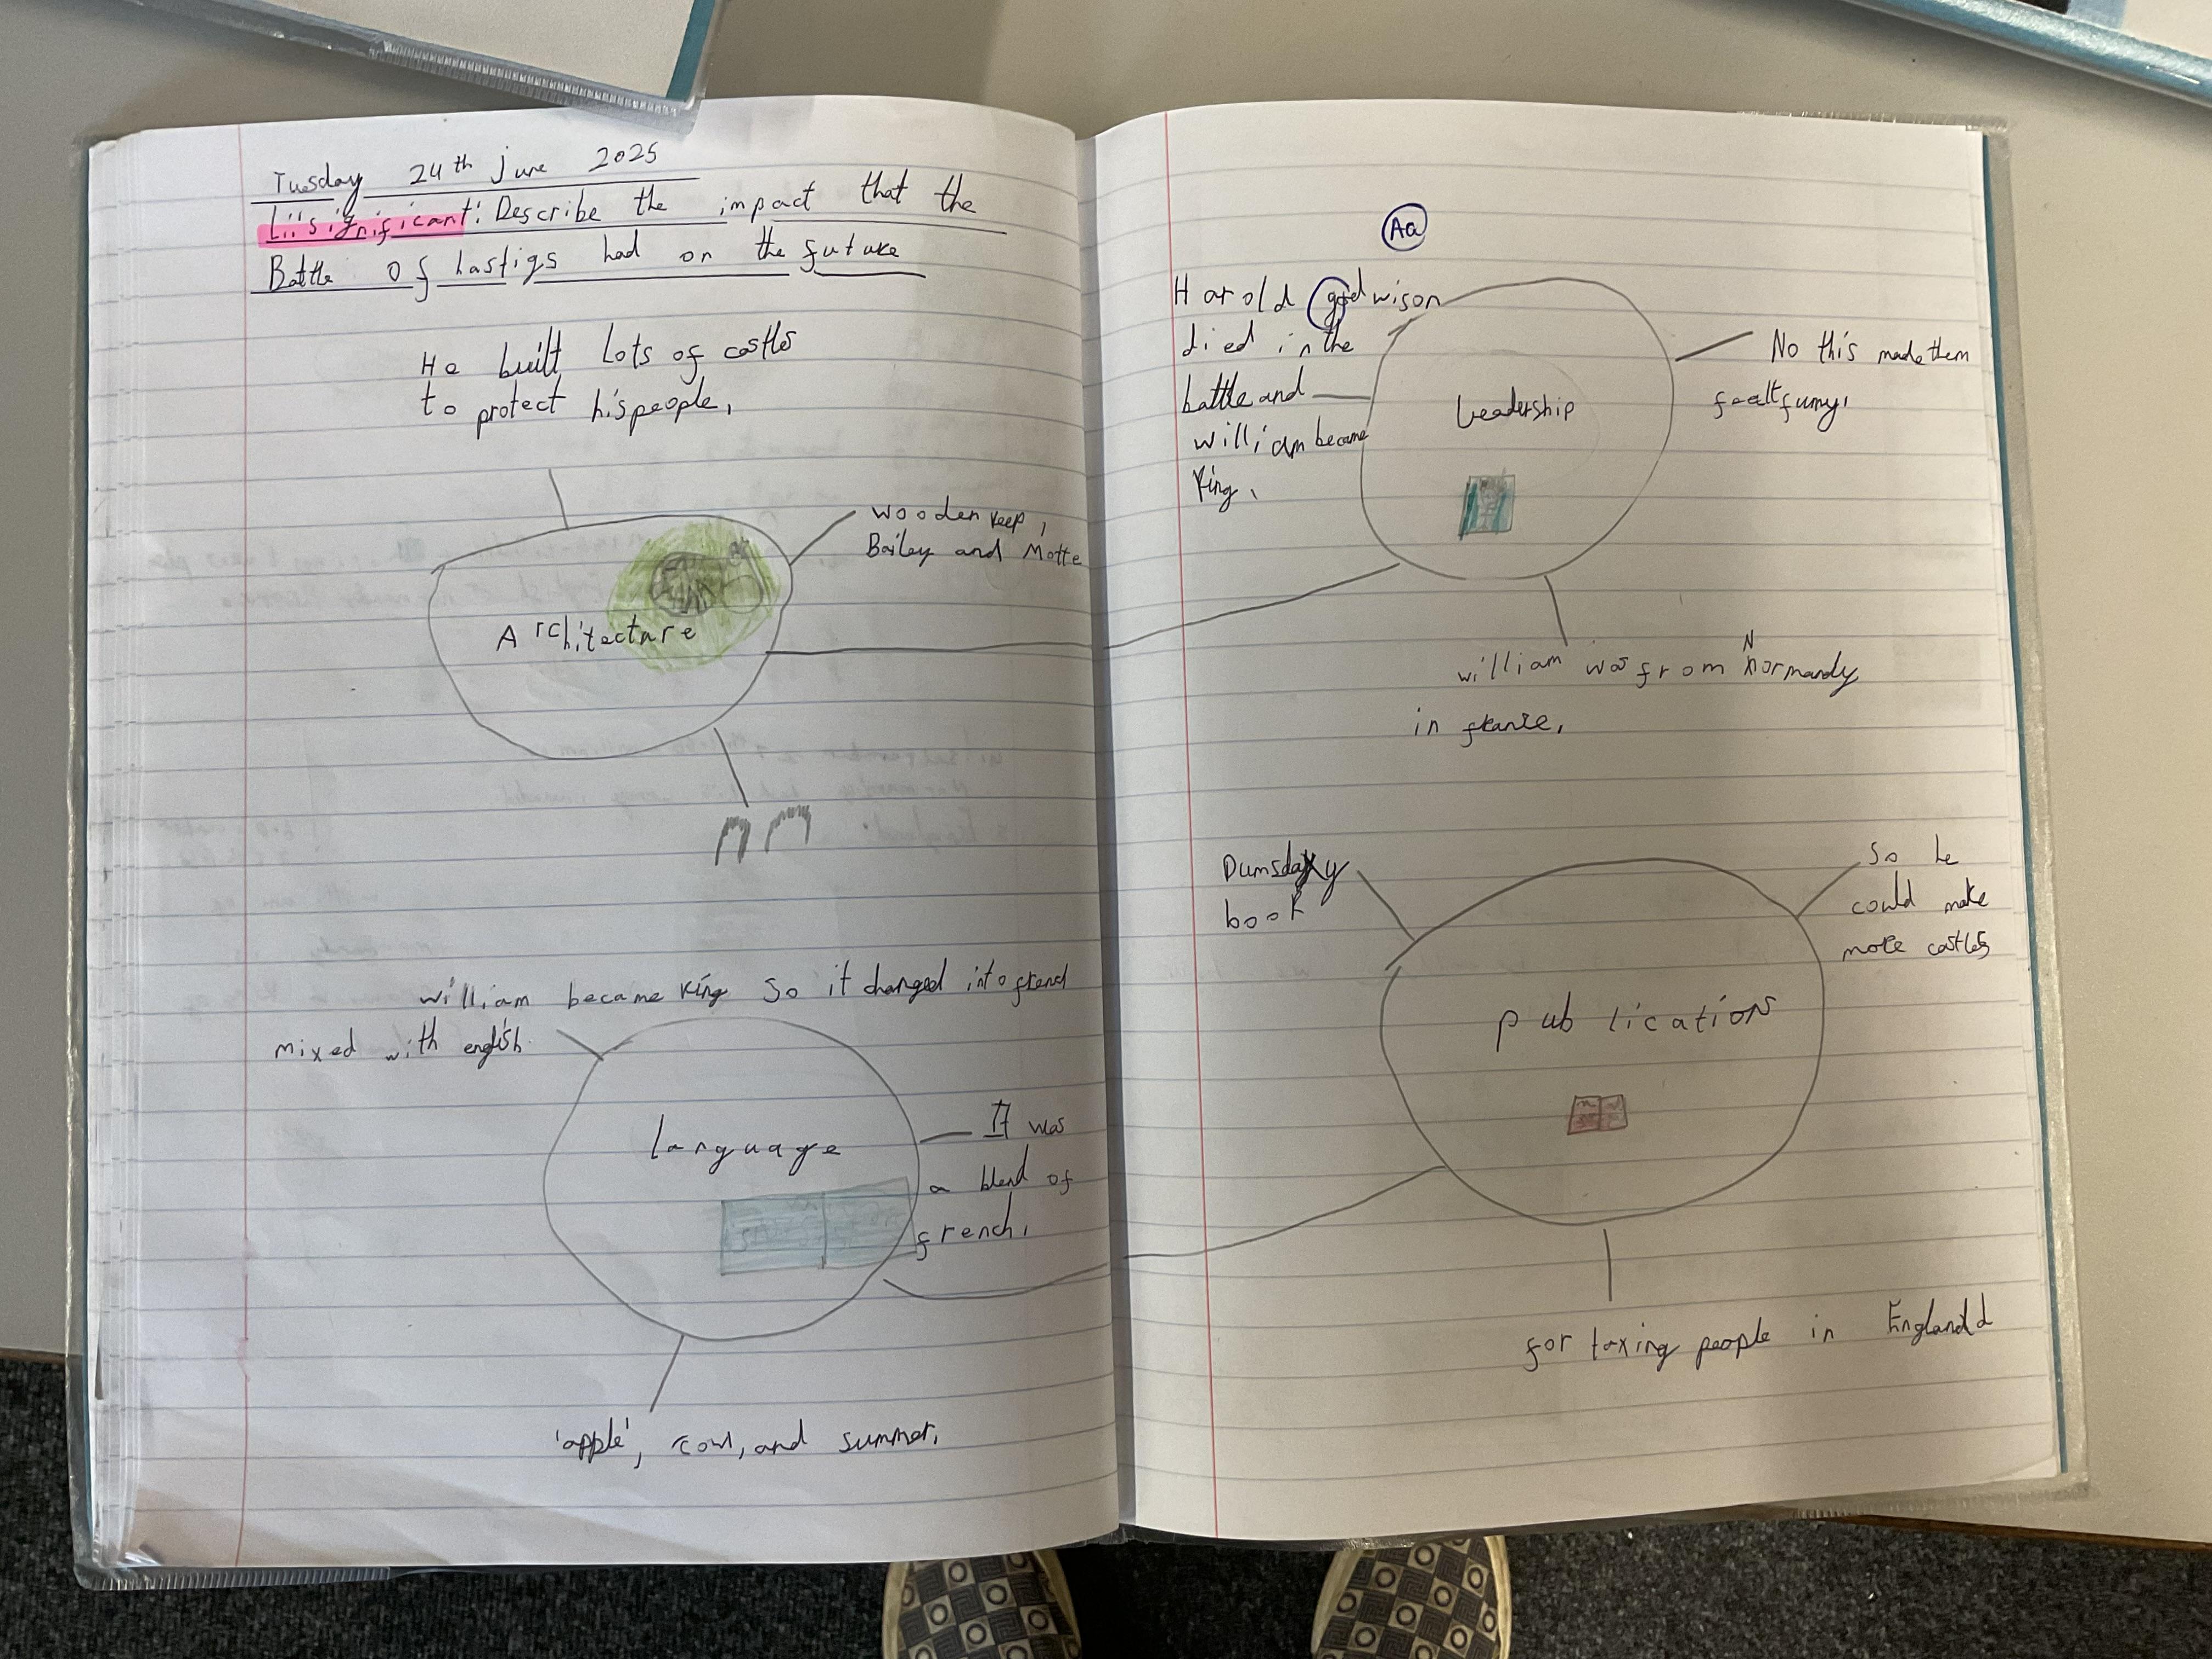 Tuesday 24th june 2025
Li: significant: Describe the impact that the
Battle Of hastigs had on the future
He built Lots of castles
to protect his people,
wooden keep,
Bailey and Motte
Architecture
william became king so it changed into french
mixed with english.
language
It was
a blend of
french,
'apple', cow, and summer,
Aa
Harold godwison
died in the
battle and
william became
King,
Leadership
No this made them
funny,
N
william was from Normandy
in france,
Dumsday
book
So he
could make
more castles
publication
for taxing people in Englandd